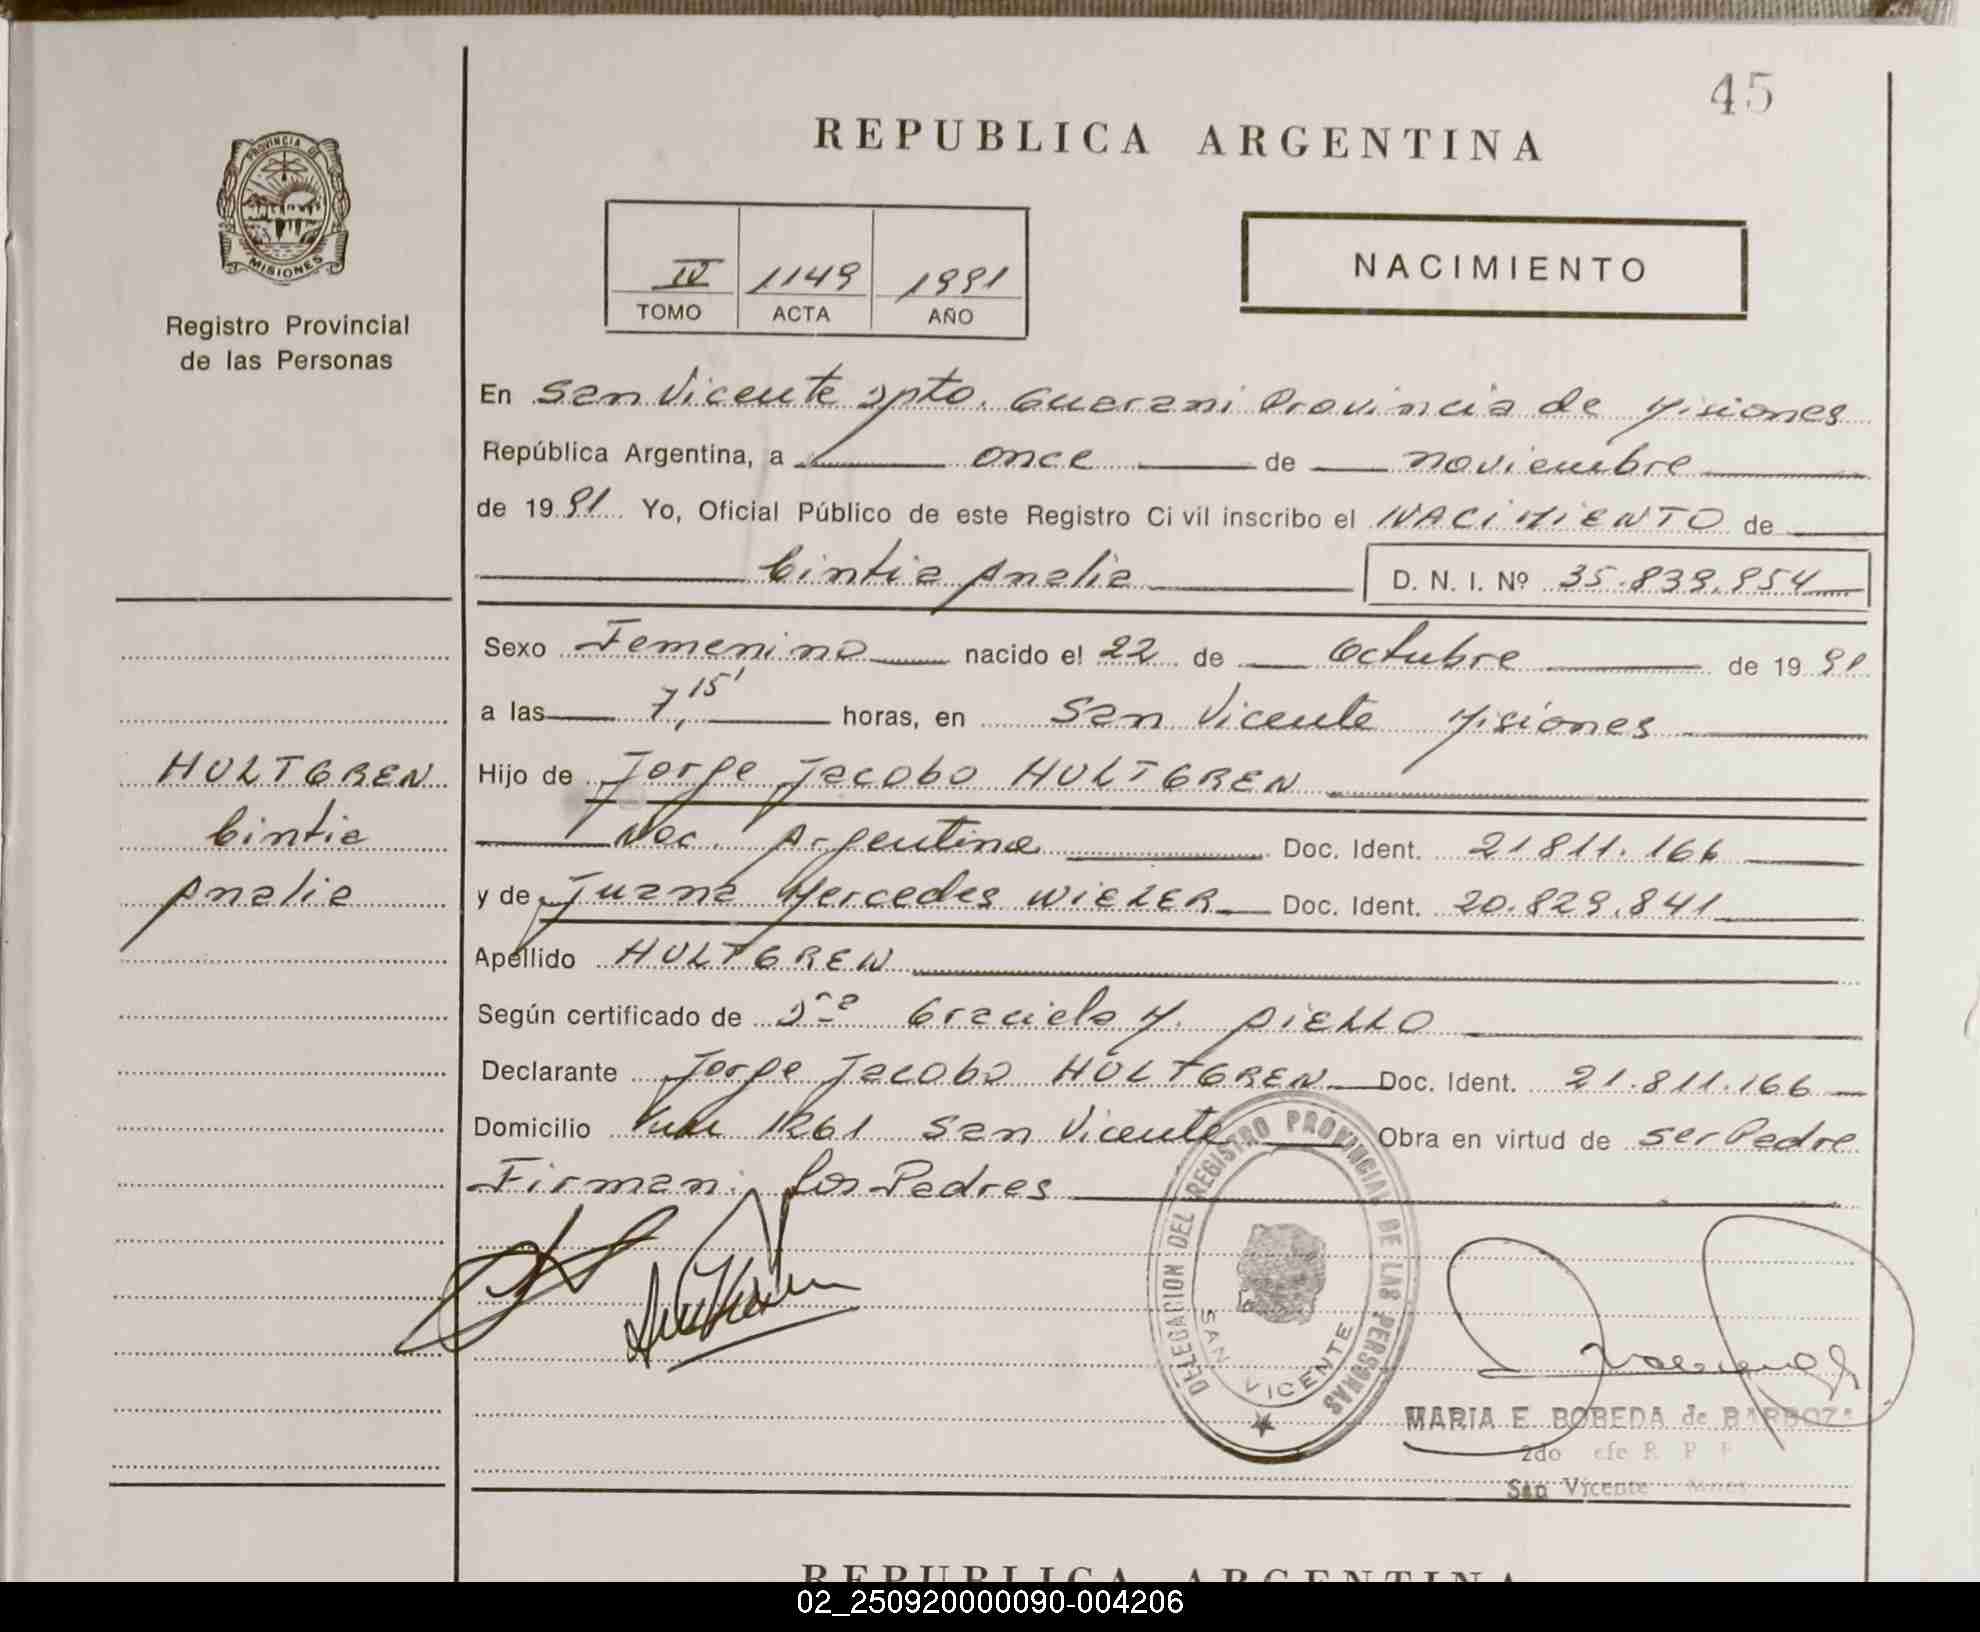 45
REPUBLICA ARGENTINA
PROVINCIA DE
MISIONES
Registro Provincial
de las Personas
IV 1149 1991
TOMO ACTA AÑO
NACIMIENTO
En San Vicente Dpto. Guarani Provincia de Misiones
República Argentina, a once de noviembre
de 1991 Yo, Oficial Público de este Registro Civil inscribo el NACIMIENTO de
Cintia Analia D. N. I. Nº 35.839.954
Sexo Femenino nacido el 22 de Octubre de 1991
a las 7,15' horas, en San Vicente Misiones
HULTGREN
Cintia
Analia
Hijo de Jorge Jacobo HULTGREN
Nac. Argentina Doc. Ident. 21811.166
y de Juana Mercedes WIELER Doc. Ident. 20.829.841
Apellido HULTGREN
Según certificado de Dra Graciela M. PIELLO
Declarante Jorge Jacobo HULTGREN Doc. Ident. 21.811.166
Domicilio 1261 San Vicente Obra en virtud de ser Padre
Firman: los Padres
DELEGACION DEL REGISTRO PROVINCIAL DE LAS PERSONAS
SAN VICENTE
MARIA E. BOBEDA de BARBOZA
2do
San Vicente
REPUBLICA ARGENTINA
02_250920000090-004206